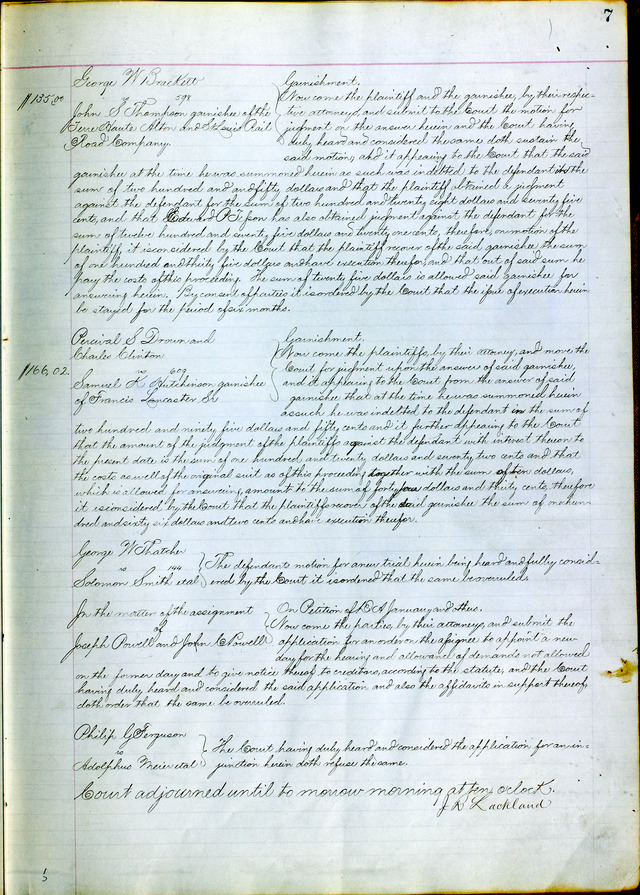 7
George W Brackett
Garnishment.
$135.00
598
Now come the plaintiff and the garnishee, by their respec-
John S Thompson garnishee of the
tive attorneys and submit to the Court the motion for
Terre Haute Alton and St Louis Rail
judgment on the answer herein and the Court having
Road Company.
duly heard and considered the same doth sustain the
said motion, and it appearing to the Court that the said
garnishee at the time he was summoned herein as such was indebted to the defendant in the
sum of two hundred and fifty dollars and that the plaintiff obtained a judgment
against the defendant for the sum of two hundred and twenty eight dollars and seventy five
cents, and that has also obtained judgment against the defendant for the
sum of twelve hundred and seventy five dollars and twenty one cents, therefore, on motion of the
plaintiff, it is considered by the Court that the plaintiff recover of the said garnishee the sum
of one hundred and thirty five dollars and have execution therefor, and that out of said sum he
pay the costs of this proceeding. The sum of twenty five dollars is allowed said garnishee for
answering herein. By consent of parties it is ordered by the Court that the issue of execution herein
be stayed for the period of six months.
Percival S Drown and
Garnishment.
Charles Clinton
Now come the plaintiffs, by their attorney, and move the
$166.02.
vs 609
Court for judgment upon the answer of said garnishee,
Samuel K Hutchinson garnishee
and it appearing to the Court from the answer of said
of Francis Lancaster Sr
garnishee that at the time he was summoned herein
as such he was indebted to the defendant in the sum of
two hundred and ninety five dollars and fifty cents and it further appearing to the Court
that the amount of the judgment of the plaintiffs against the defendant with interest thereon to
the present date is the sum of one hundred and twenty dollars and seventy two cents and that
the costs as well of the original suit as of this proceeding together with the sum of ten dollars,
which is allowed for answering, amount to the sum of forty four dollars and thirty cents, therefore
it is considered by the Court that the plaintiffs recover of the said garnishee the sum of one hun-
dred and sixty six dollars and two cents and have execution therefor.
George W Thatcher
vs 144
The defendants motion for a new trial herein being heard and fully consid-
Solomon Smith et al
ered by the Court it is ordered that the same be overruled.
In the matter of the assignment
On Petition of D A January and others.
of
Now come the parties, by their attorneys, and submit the
Joseph Powell and John C Powell
application for an order on the assignee to appoint a new
day for the hearing and allowance of demands not allowed
on the former day and to give notice thereof to creditors, according to the statute, and the Court
having duly heard and considered the said application and also the affidavits in support thereof,
doth order that the same be overruled.
Philip G Ferguson
vs
The Court having duly heard and considered the application for an in-
Adolphus Meier et al
junction herein doth refuse the same.
Court adjourned until to morrow morning at ten o clock.
J R Lackland